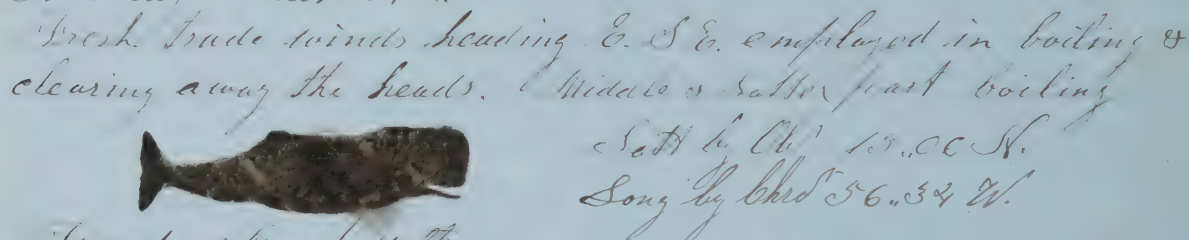 Fresh trade winds heading E. S E. employed in boiling &
clearing away the heads. Middle & Latter part boiling
Latt by Ob
Long by Chrd 56..34 W.